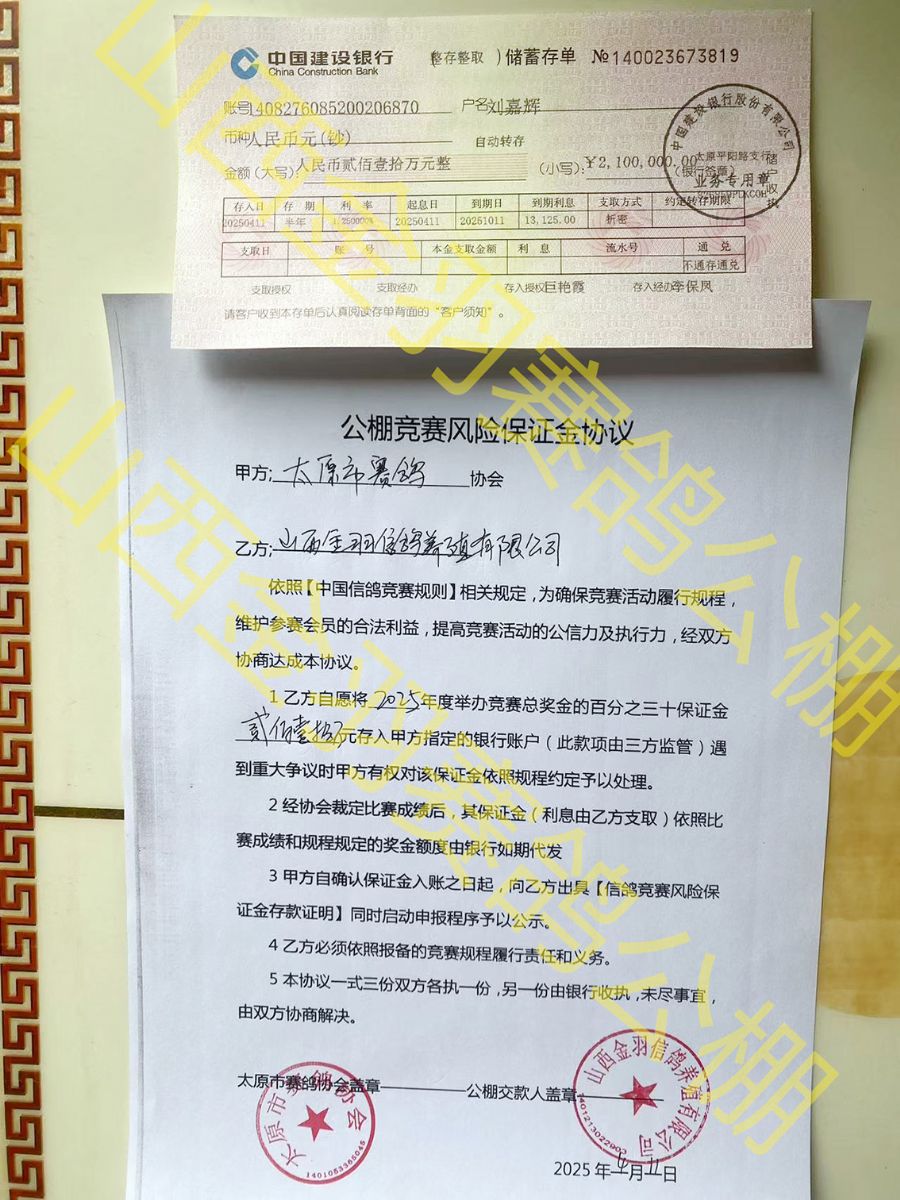 中国建设银行 (整存整取)储蓄存单 №140023673819
China Construction Bank
账号1408276085200206870 户名刘嘉辉
币种人民币元(钞) 自动转存
金额(大写)人民币贰佰壹拾万元整 (小写):¥2,100,000.00 (银行签章)
储户收执
中国建设银行股份有限公司
太原平阳路支行
业务专用章
存入日 存 期 利 率 起息日 到期日 到期利息 支取方式 约定转存期限
20250411 半年 1.250000% 20250411 20251011 13,125.00 折密
支取日 账 号 本金支取金额 利 息 流水号 通 兑
不通存通兑
支取授权 支取经办 存入授权巨艳霞 存入经办李保凤
请客户收到本存单后认真阅读存单背面的“客户须知”。
公棚竞赛风险保证金协议
甲方:太原市赛鸽协会
乙方:山西金羽信鸽养殖有限公司
依照【中国信鸽竞赛规则】相关规定,为确保竞赛活动履行规程,
维护参赛会员的合法利益,提高竞赛活动的公信力及执行力,经双方
协商达成本协议。
1 乙方自愿将2025年度举办竞赛总奖金的百分之三十保证金
贰佰壹拾万元存入甲方指定的银行账户(此款项由三方监管)遇
到重大争议时甲方有权对该保证金依照规程约定予以处理。
2 经协会裁定比赛成绩后,其保证金(利息由乙方支取)依照比
赛成绩和规程规定的奖金额度由银行如期代发
3 甲方自确认保证金入账之日起,向乙方出具【信鸽竞赛风险保
证金存款证明】同时启动申报程序予以公示。
4 乙方必须依照报备的竞赛规程履行责任和义务。
5 本协议一式三份双方各执一份,另一份由银行收执,未尽事宜,
由双方协商解决。
太原市赛鸽协会盖章 公棚交款人盖章
太原市赛鸽协会
1401053365045
山西金羽信鸽养殖有限公司
1401213022903
2025年4月11日
山西金羽赛鸽公棚
山西金羽赛鸽公棚